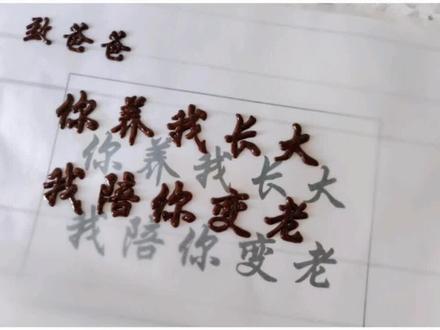 致爸爸
你养我长大
你养我长大
我陪你变老
我陪你变老